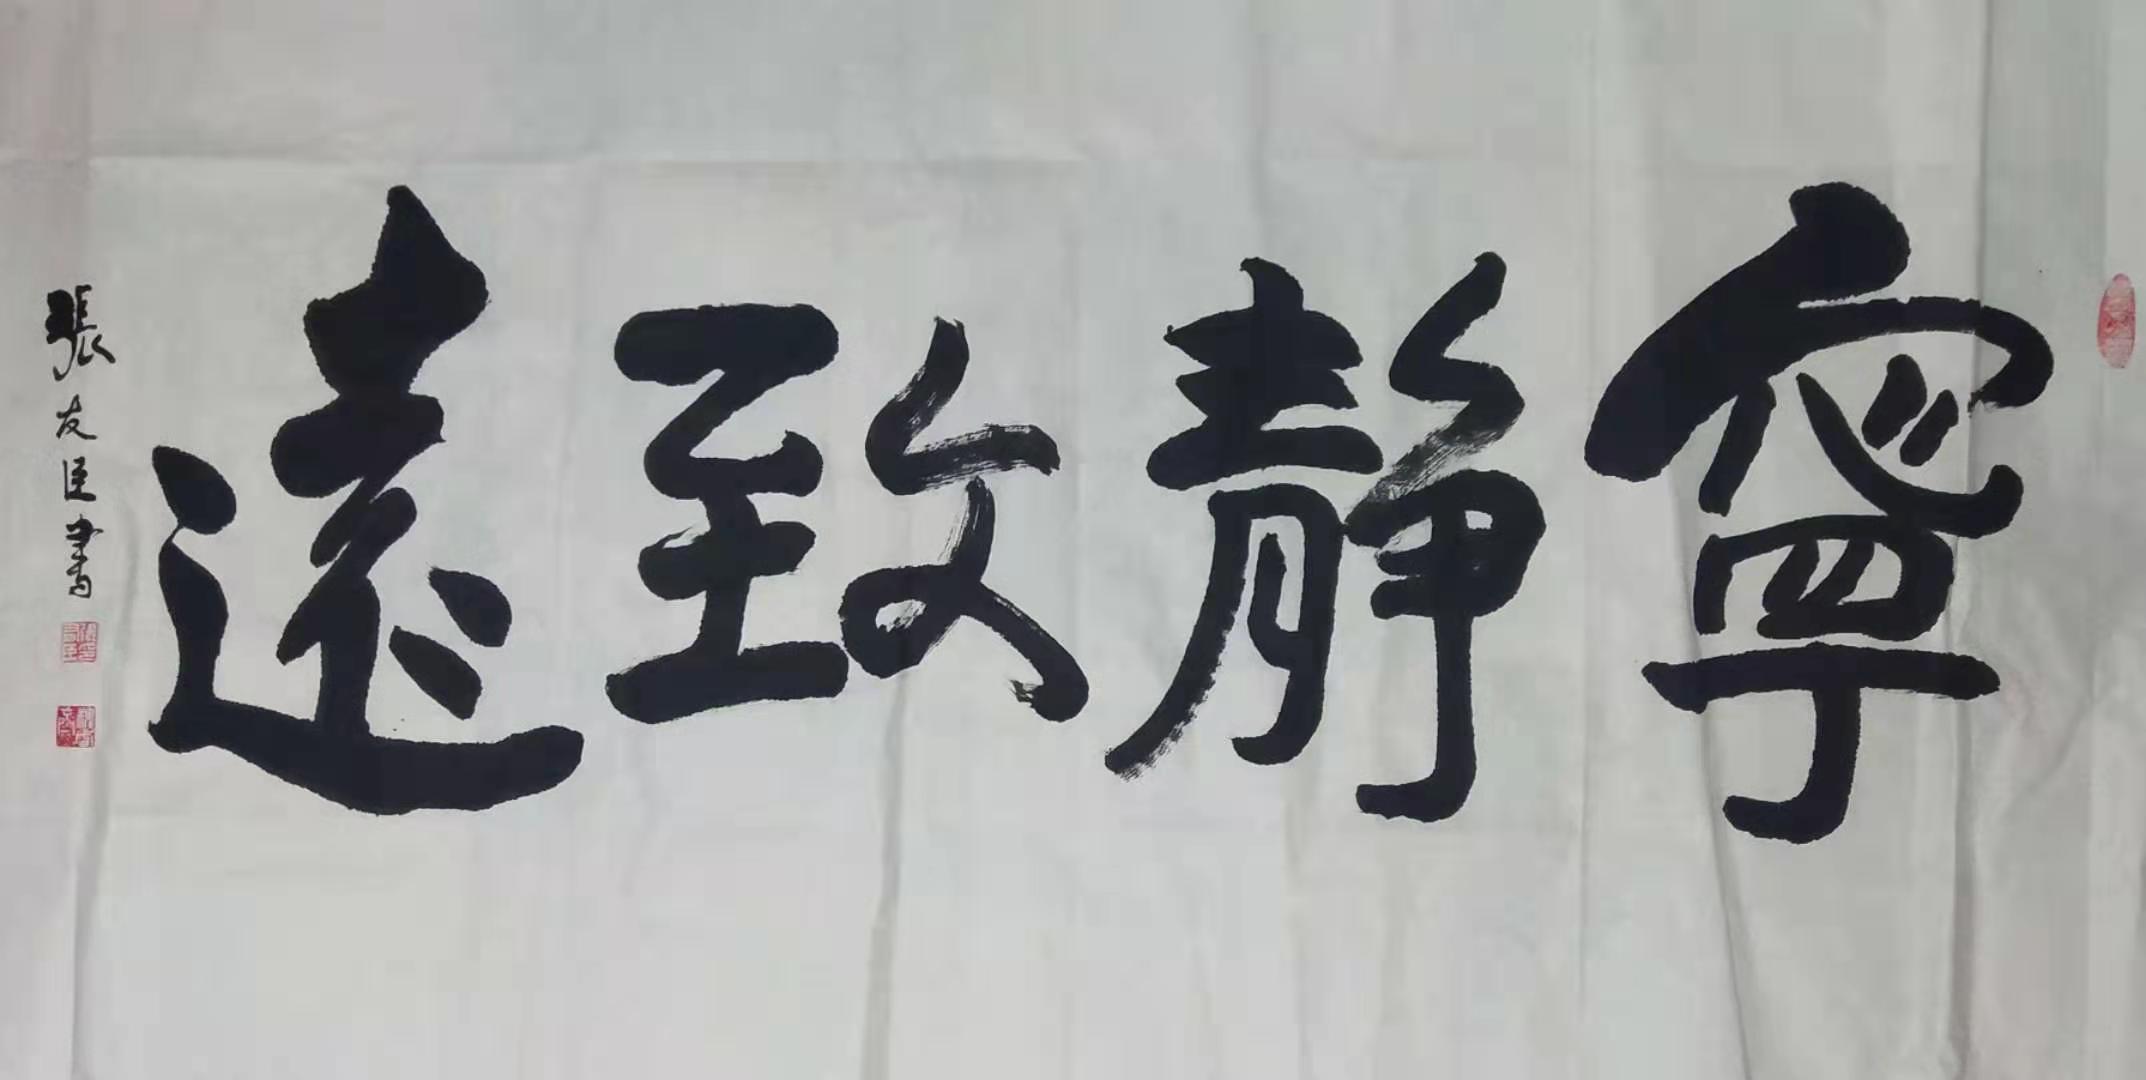 寧靜致遠
張友臣書